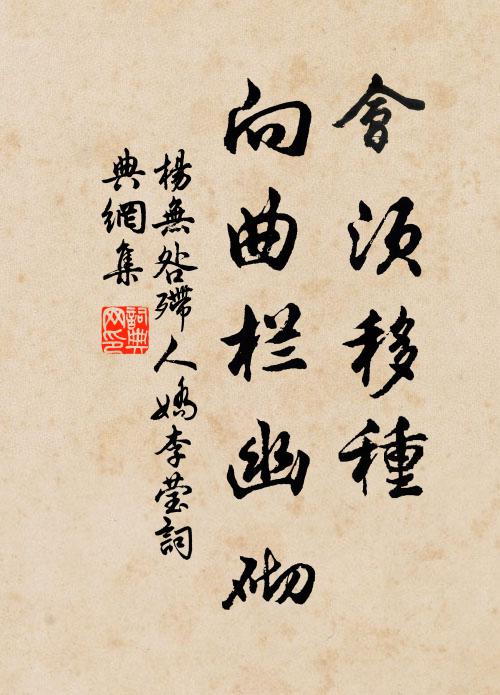 會須移種
向曲栏幽砌
楊無咎殢人嬌李莹詞
典網集
詞典网印